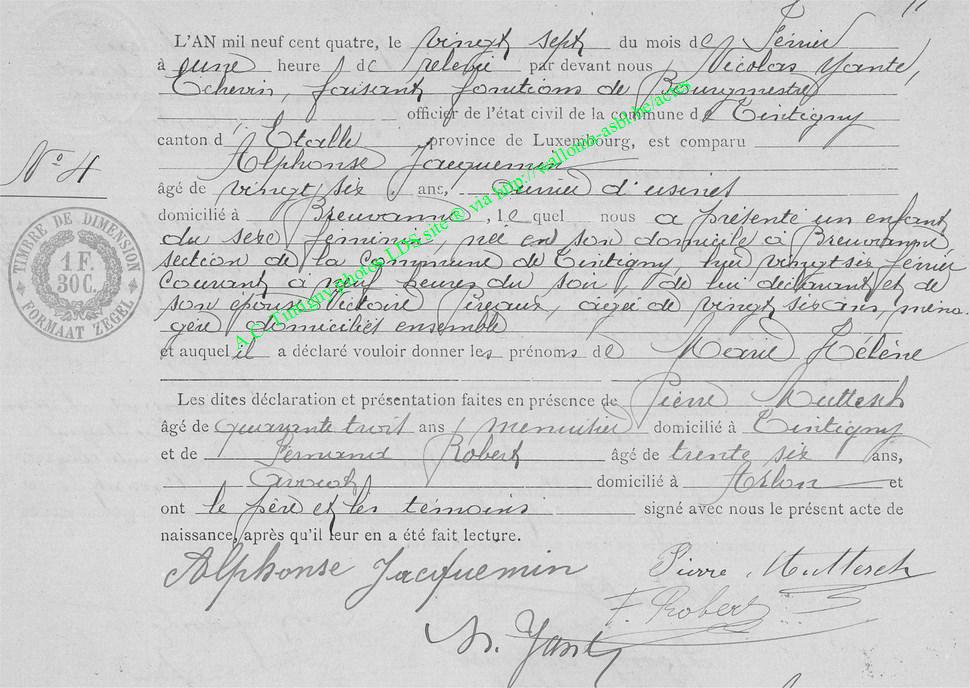 L'AN mil neuf cent quatre, le vingt sept du mois de Février
à une heure de relevée par devant nous Nicolas Yante,
Echevin, faisant fonctions de Bourgmestre
officier de l'état civil de la commune de Tintigny
canton d'Etalle province de Luxembourg, est comparu
Alphonse Jacquemin
âgé de vingt six ans, ouvrier d'usines
domicilié à Breuvanne, lequel nous a présenté un enfant
du sexe féminin, née en son domicile à Breuvanne,
section de la commune de Tintigny, hier vingt six février
courant à neuf heures du soir, de lui déclarant et de
son épouse Victoire agée de vingt six ans, ména-
gère domiciliés ensemble
et auquel il a déclaré vouloir donner les prénoms de Marie Hélène
Les dites déclaration et présentation faites en présence de Pierre Muttesch
âgé de quarante trois ans menuisier domicilié à Tintigny
et de Fernand Robert âgé de trente six ans,
avocat domicilié à Arlon et
ont le père et les témoins signé avec nous le présent acte de
naissance, après qu'il leur en a été fait lecture.
Alphonse Jacquemin Pierre Muttesch
F. Robert
N. Yante
N° 4
TIMBRE DE DIMENSION
1 F.
30 C.
FORMAAT ZEGEL
A.C. Tintigny photos LDS site ® via http://wallonia-asbl.be/actes